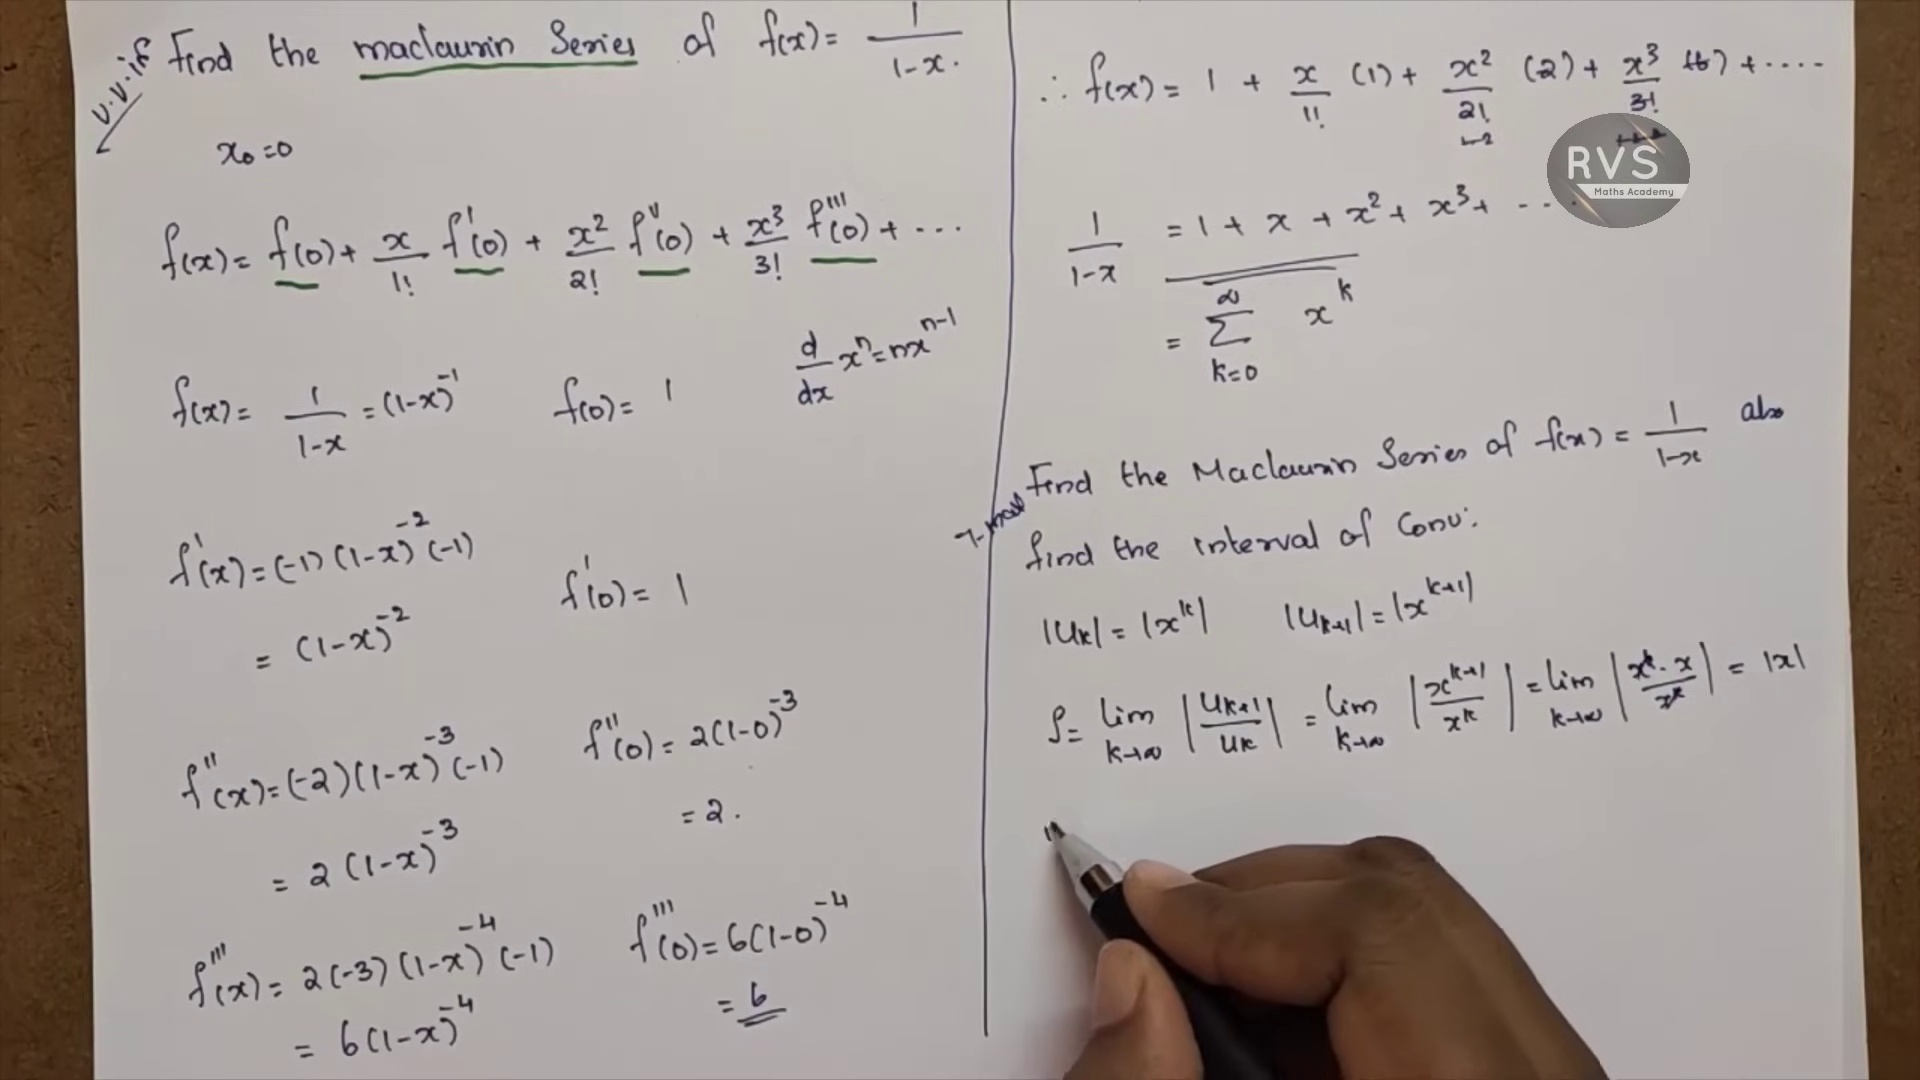 v.v.if Find the maclaurin Series of f(x) = 1/1-x.
x₀=0
f(x) = f(0) + x/1! f'(0) + x²/2! f''(0) + x³/3! f'''(0) + ...
d/dx xⁿ = nxⁿ⁻¹
f(x) = 1/1-x = (1-x)⁻¹ f(0) = 1
f'(x) = (-1) (1-x)⁻² (-1)
= (1-x)⁻² f'(0) = 1
f''(x) = (-2) (1-x)⁻³ (-1) f''(0) = 2(1-0)⁻³
= 2 (1-x)⁻³ = 2.
f'''(x) = 2(-3) (1-x)⁻⁴ (-1) f'''(0) = 6(1-0)⁻⁴
= 6(1-x)⁻⁴ = 6
∴ f(x) = 1 + x/1! (1) + x²/2! (2) + x³/3! (6) + ....
1·2
RVS
Maths Academy
1/1-x = 1 + x + x² + x³ + ...
= ∞ Σ k=0 xᵏ
Find the Maclaurin Series of f(x) = 1/1-x also
find the interval of Conv:
|uₖ| = |xᵏ| |uₖ₊₁| = |xᵏ⁺¹|
ρ = lim k→∞ |uₖ₊₁/uₖ| = lim k→∞ |xᵏ⁺¹/xᵏ| = lim k→∞ |xᵏ·x/xᵏ| = |x|